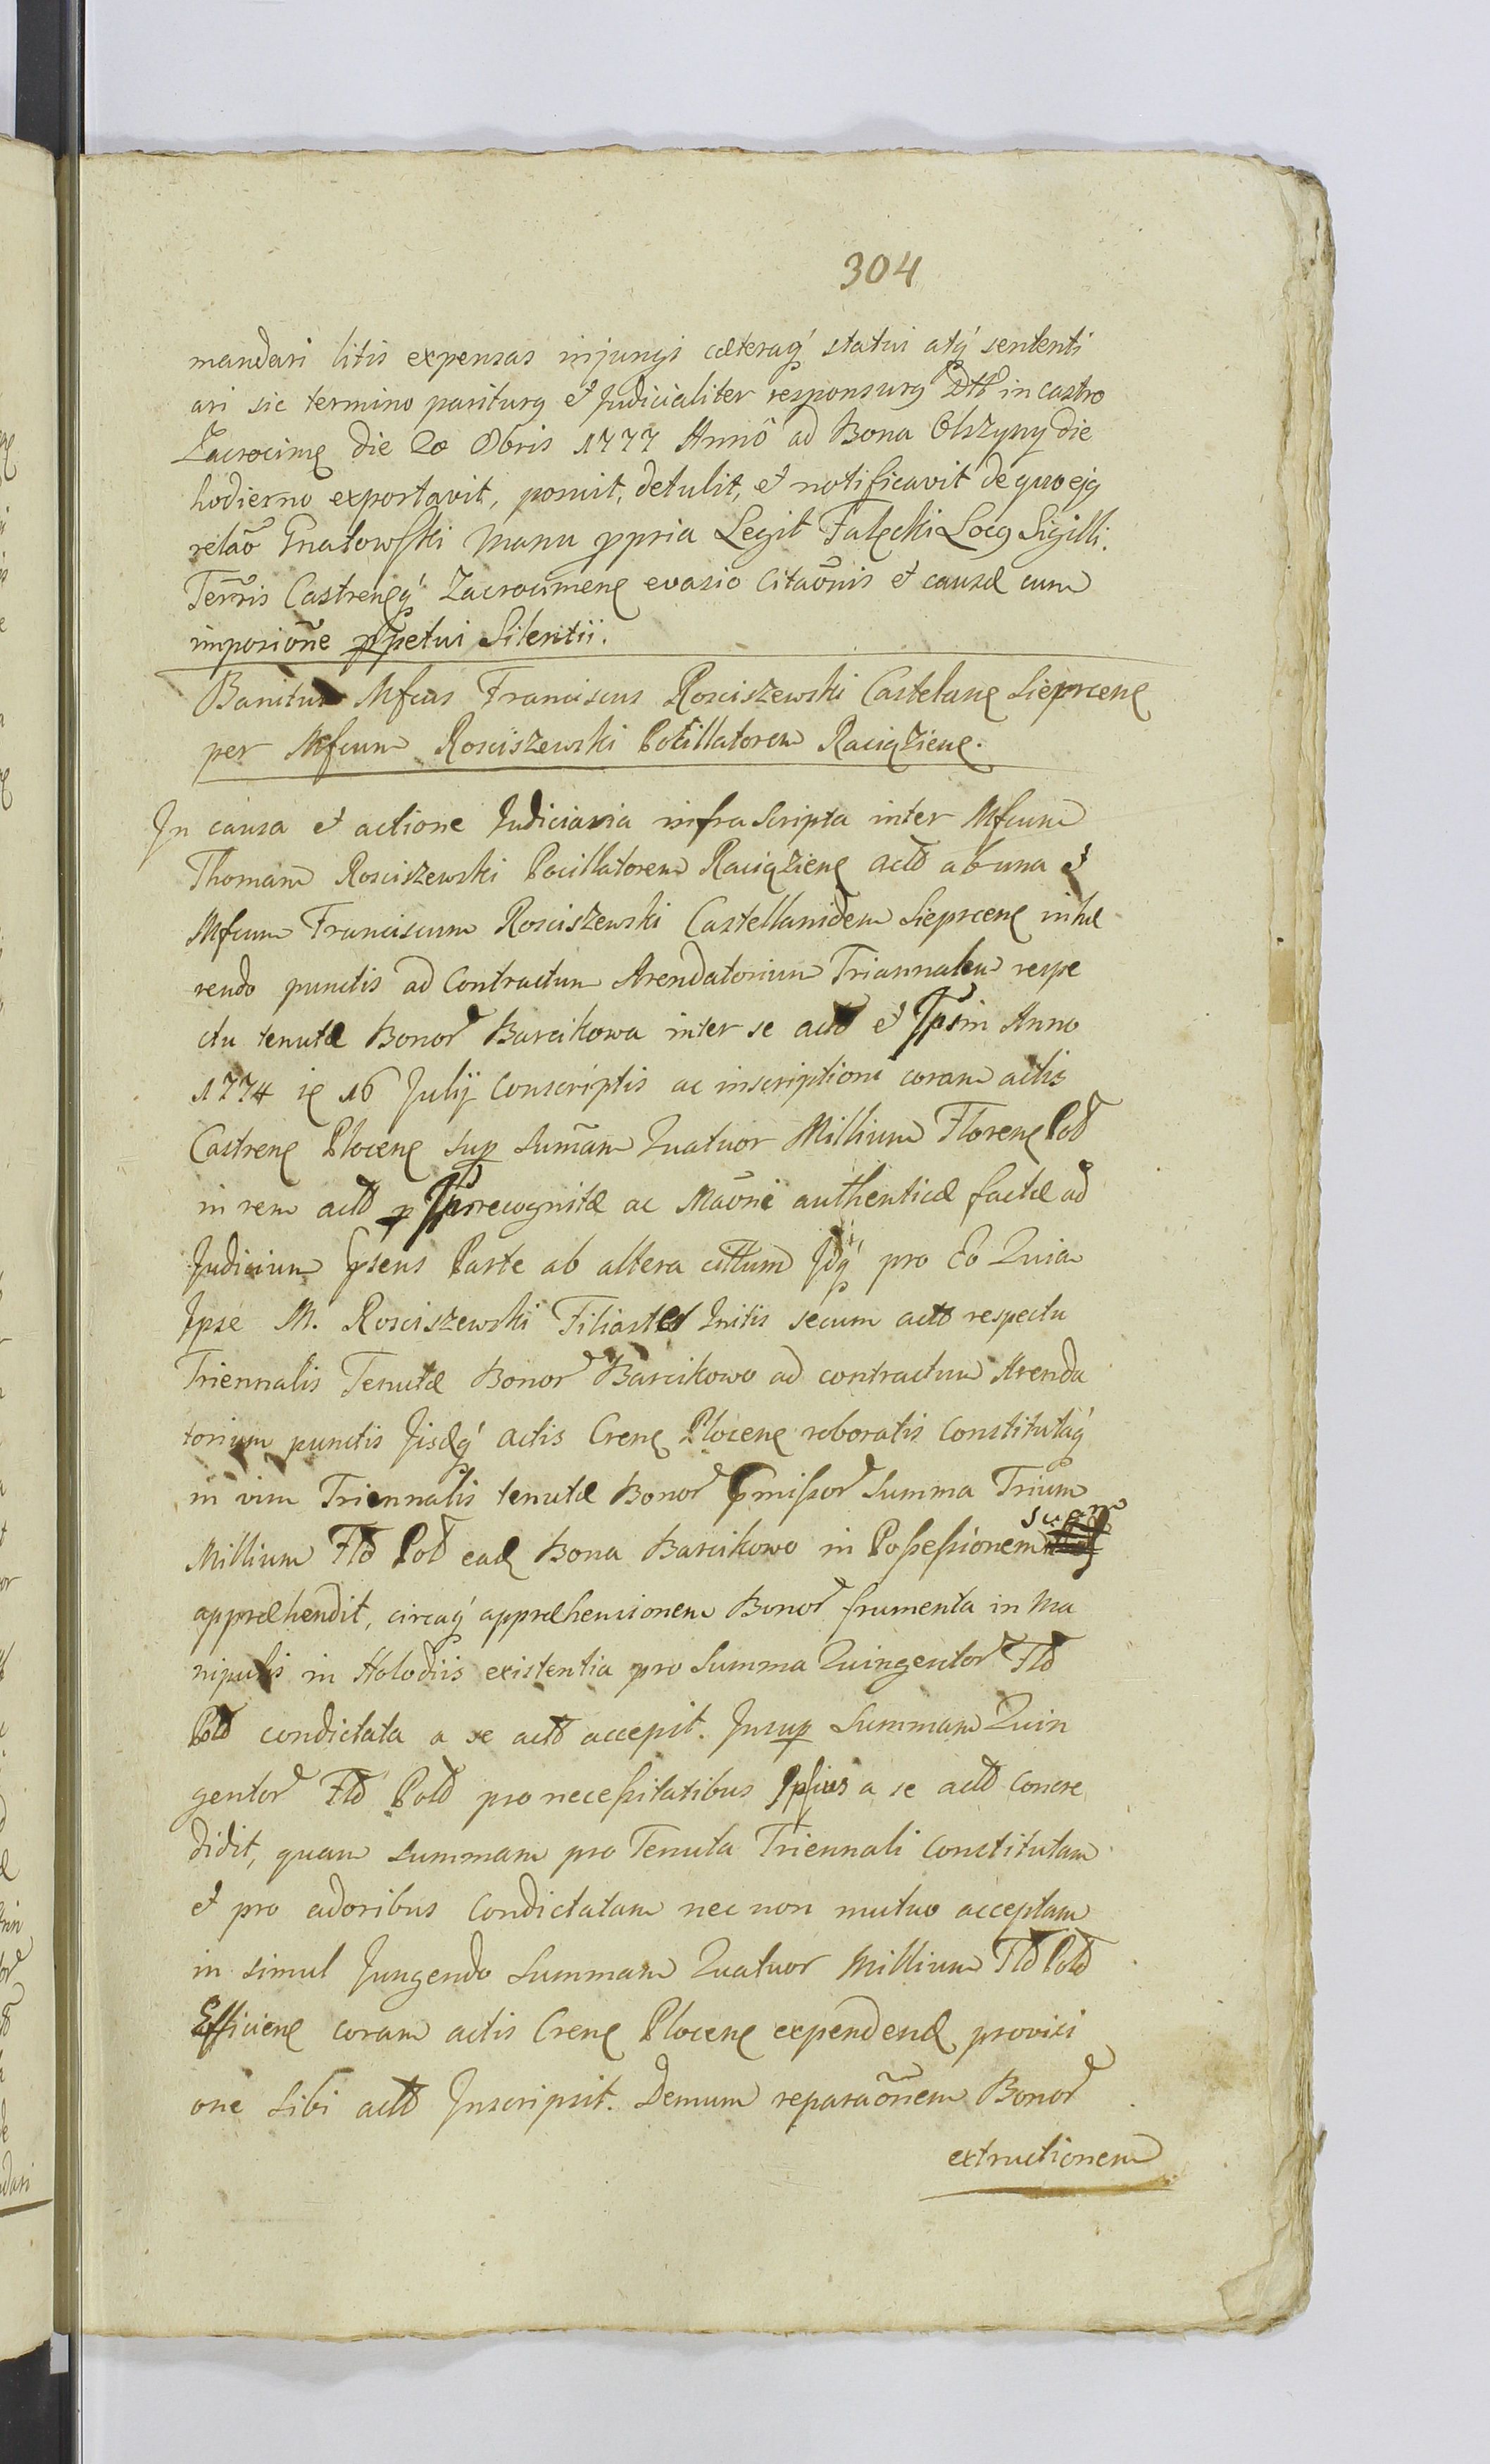 304
mandari litis expensas injungi cæteraq́ statui atq́ sententi
ari sic termino pariturꝯ et Judicialiter responsurꝯ Dtt in Castro
Zacrocimę die 20 Obris 1777 Annô ad Bona Olszyny die
hodierno exportavit, posuit, detulit, et notificavit de quo ejꝯ
relaõ Gnatowski manu ppria Legit Falęcki Locꝯ Sigilli.
Terr̃is Castrenęq́ Zacrocimenę evasio Citaõnis et causæ cum
imposiõne ppetui Silentii.
Banitus Mfcus Franciscus Rosciszewski Castelanę Sieprcenę
per Mfcum Rosciszewski Pocillatorem Raciązienę.
In causa et actione Judiciaria infra Scripta inter Mfcum
Thomam Rosciszewski Pocillatorem Raciązienę actõ ab una et
Mfcum Franciscum Rosciszewski Castellanidem Sieprcenę inhæ
rendo punctis ad Contractum Arendatorium Triannalem respe
ctu tenutæ Bonor Barcikowa inter se actõ et Ipsm Anno
1774 ię 16 Julij Conscriptis ac inscriptioni coram actis
Castrenę Plocenę sup Sum̃am Quatuor Millium Florenę Pol
in rem actõ p Ips recognitæ ac Maõni authenticæ factæ ad
Judicium psens Parte ab altera cittum Idq́ pro Eo Quia
Ipse M. Rosciszewski Filiaster Initis secum actõ respectu
Triennalis Tenutæ Bonor Barcikowo ad contractum Arenda
torium punctis Jisdq́ actis Crenę Plocenę roboratis Constitutaq́
in vim Triennalis tenutæ Bonor pmissor Summa Trium
Millium Flõ Pol eadę Bona Barcikowo in Possessionem suam
appræhendit, circaq́ appræhensionem Bonor frumenta in Ma
nipulis in Holodiis existentia pro Summa Quingentor Flõ
Polõ condictata a se actõ accepit. Insup Summam Quin
gentor Flõ Polõ pro necessitatibus Ipsius a se actõ Concre
didit, quam Summam pro Tenuta Triennali Constitutam
et pro adoribus Condictatam nec non mutuo acceptam
in simul Jungendo Summam Quatuor Millium Flõ Polõ
Efficienę coram actis Crenę Plocenę expendendę provisi
one Sibi actõ Inscripsit. Demum reparaõnem Bonor
extructionem